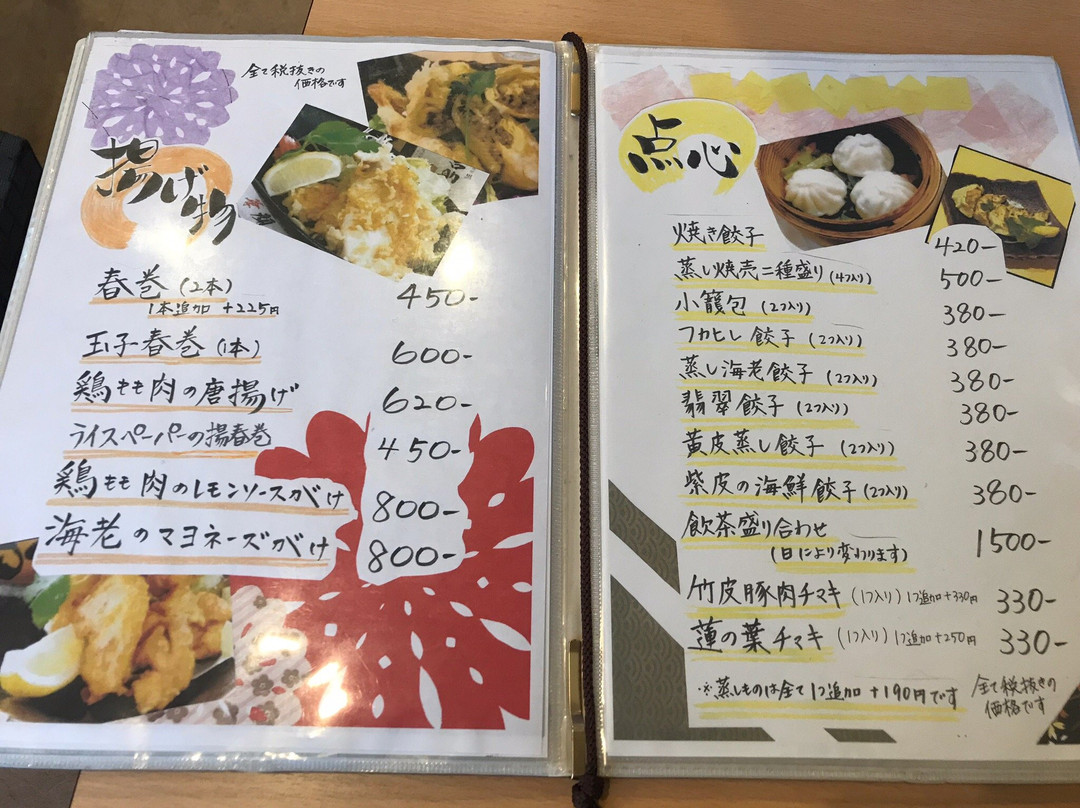 全て税抜きの
価格です
揚げ物
春巻(2本) 450-
1本追加 +225円
玉子春巻(1本) 600-
鶏もも肉の唐揚げ 620-
ライスペーパーの揚春巻 450-
鶏もも肉のレモンソースがけ 800-
海老のマヨネーズがけ 800-
点心
焼き餃子 420-
蒸し焼売二種盛り(4つ入り) 500-
小籠包(2つ入り) 380-
フカヒレ餃子(2つ入り) 380-
蒸し海老餃子(2つ入り) 380-
翡翠餃子(2つ入り) 380-
黄皮蒸し餃子(2つ入り) 380-
紫皮の海鮮餃子(2つ入り) 380-
飲茶盛り合わせ 1500-
(日により変わります)
竹皮豚肉チマキ(1つ入り)1つ追加+330円 330-
蓮の葉チマキ(1つ入り)1つ追加+250円 330-
※蒸しものは全て1つ追加+190円です
全て税抜きの
価格です